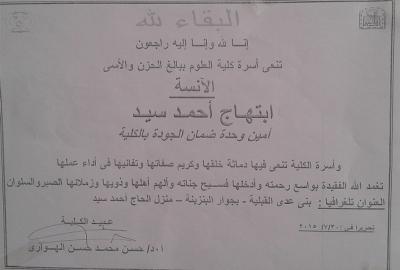 البقاء لله
إنا لله وإنا إليه راجعون
تنعى أسرة كلية العلوم ببالغ الحزن والأسى
الآنسة
ابتهاج أحمد سيد
أمين وحدة ضمان الجودة بالكلية
وأسرة الكلية تنعى فيها دماثة خلقها وكريم صفاتها وتفانيها فى أداء عملها
تغمد الله الفقيدة بواسع رحمته وأدخلها فسيح جناته وألهم أهلها وذويها وزملائها الصبر والسلوان
العنوان تلغرافيا : بنى عدى القبلية - بجوار البنزينة - منزل الحاج احمد سيد
تحريرا فى : ٢٠١٥/٧/٢٠
عميد الكلية
أ.د/ حسن محمد حسن الهوارى